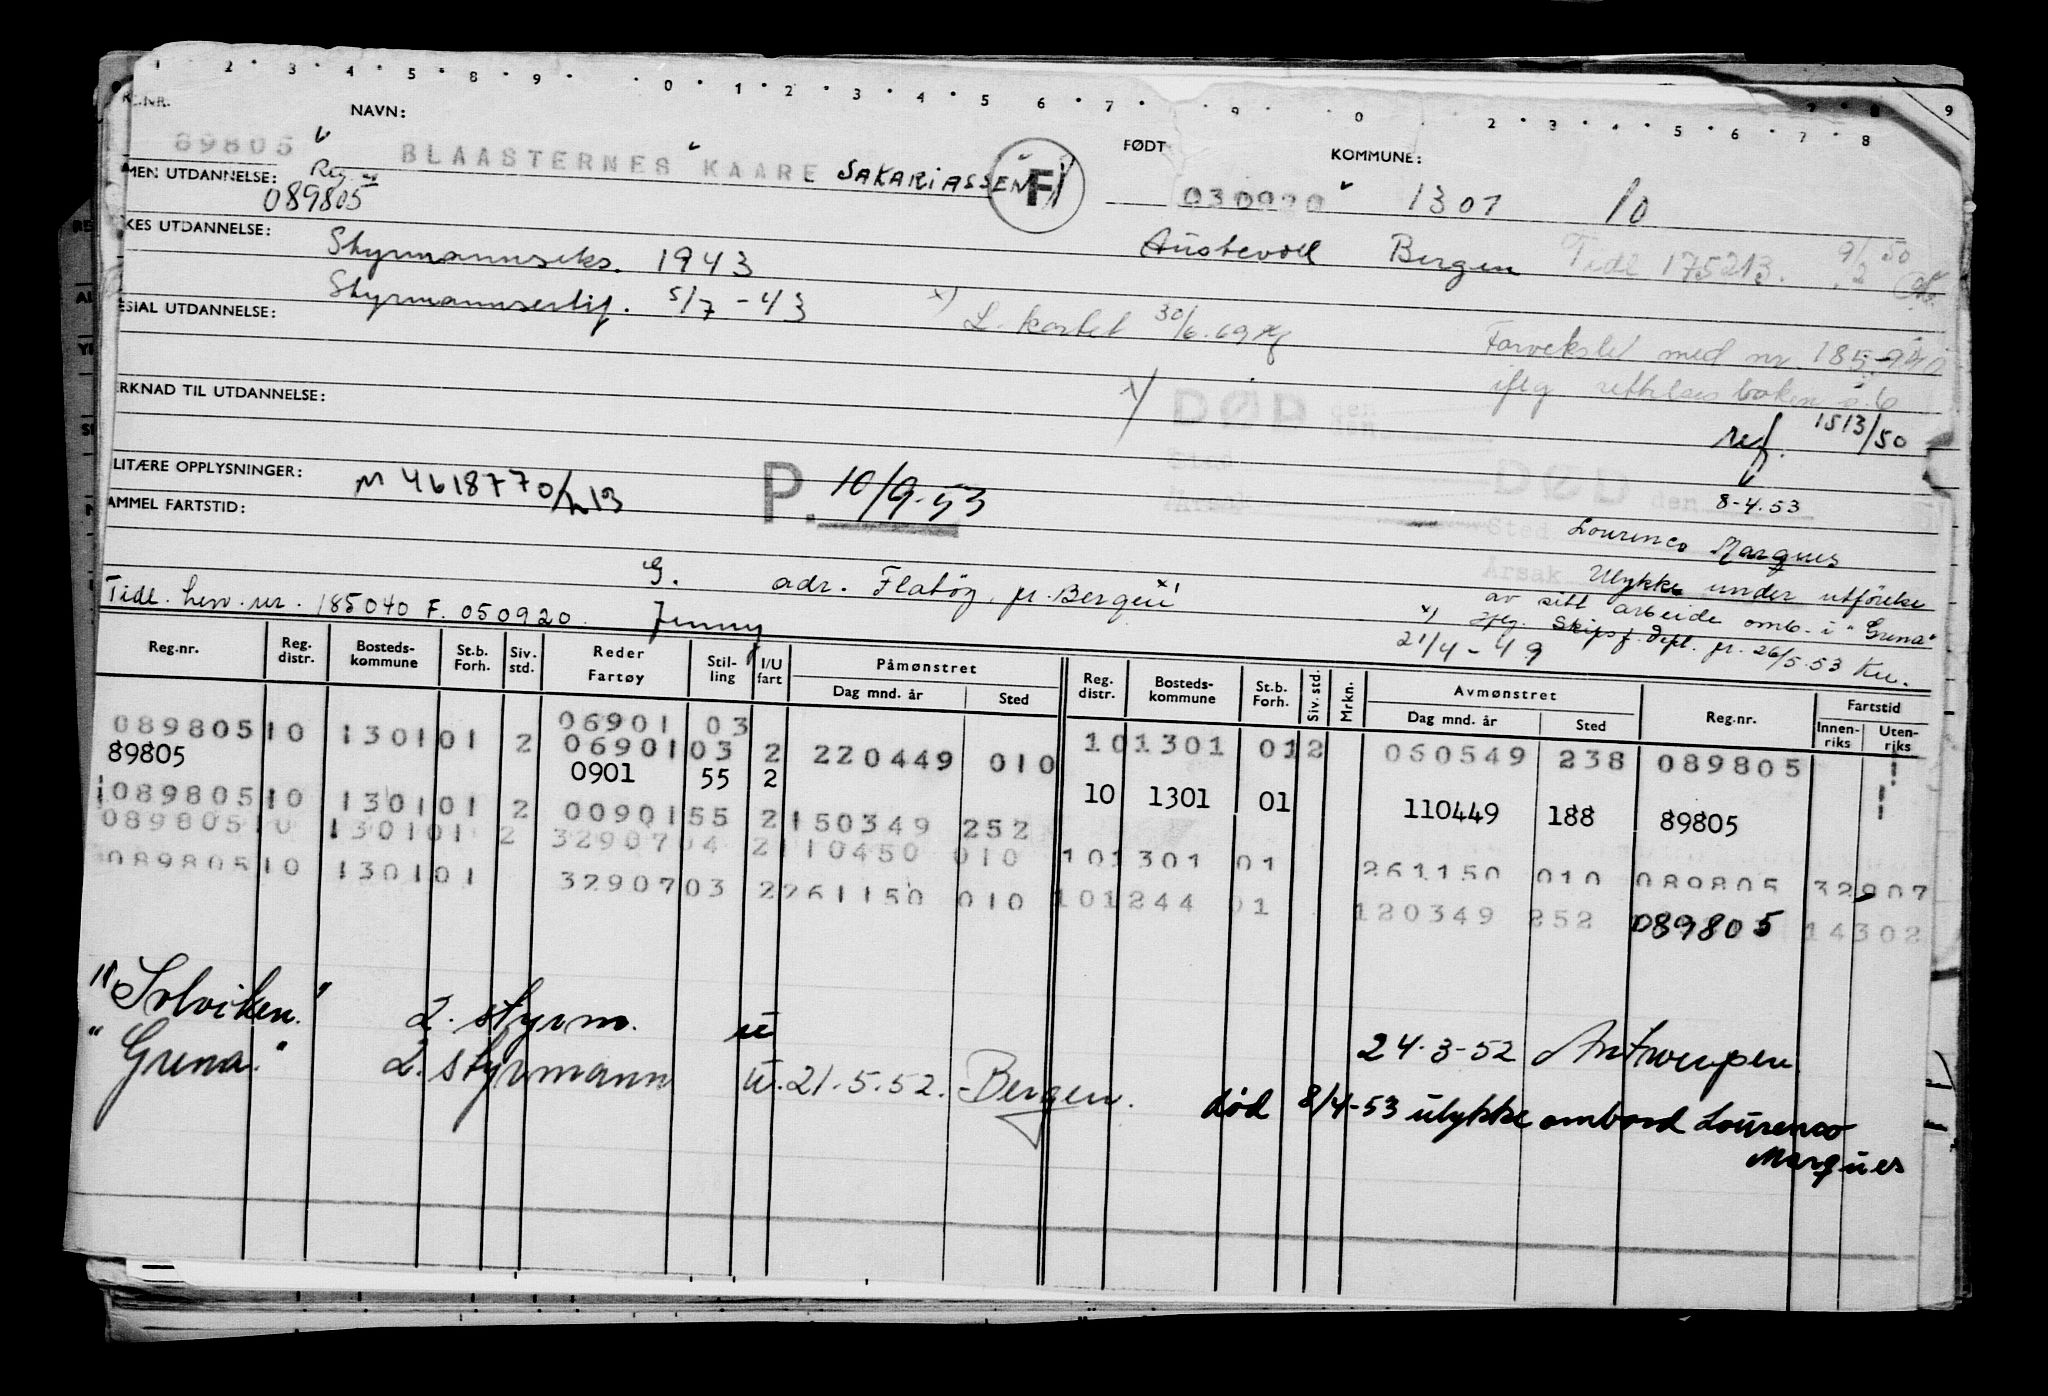 1 2 3 4 5 8 9 0 1 2 3 4 5 6 7 9 0 2 3 4 5 6 7 8 9
NR. NAVN: FØDT KOMMUNE:
89805 BLAASTERNES KAARE SAKARIASSEN F 030920 1301 10
MEN UTDANNELSE: Reg.
089805
KES UTDANNELSE: Austevoll Bergen Tidl 175213. 9/2 50
Styrmannseks. 1943
Styrmannsertif. 5/7-43
ESIAL UTDANNELSE: x) L. kortet 30/6.69 Forvekslet med nr. 185
iflg
RKNAD TIL UTDANNELSE: x) DØD den ref. 1513/50
Sted
LITÆRE OPPLYSNINGER: M 4618770/h13 P. 10/9-53 Årsak DØD den 8-4.53
AMMEL FARTSTID: Sted Lourenco Marques
Årsak Ulykke under utförelse
av sitt arbeide omb. i "Grena"
G. adr. Flatöy, pr. Bergen x)
x) iflg. Skipsf. dept. pr. 26/5.53
Tidl. hen. nr. 185040 F. 050920. Jenny 21/4-49
Reg.nr. Reg. distr. Bosteds-kommune St.b. Forh. Siv. std. Reder Fartøy Stil-ling I/U fart Påmønstret Dag mnd. år Sted Reg. distr. Bosteds-kommune St.b. Forh. Siv. std. Mrkn. Avmønstret Dag mnd. år Sted Reg.nr. Fartstid Innen-riks Uten-riks
06901 03
089805 10 1301 01 2 06901 03 2 220449 010 10 1301 01 2 060549 238 089805
89805 0901 55 2 10 1301 01 110449 188 89805
089805 10 1301 01 2 00901 55 2 150349 252
089805 10 1301 01 2 32907 04 2 110450 010 10 1301 01 261150 010 089805 32907
089805 10 1301 01 32907 03 2 261150 010 10 1244 01 120349 252 089805 14302
"Solviken." 2. styrm. u 24-3-52 Antwerpen.
"Grena." 2. styrmann u. 21.5.52. Bergen.
død 8/4-53 ulykke ombord Lourenco
Marques